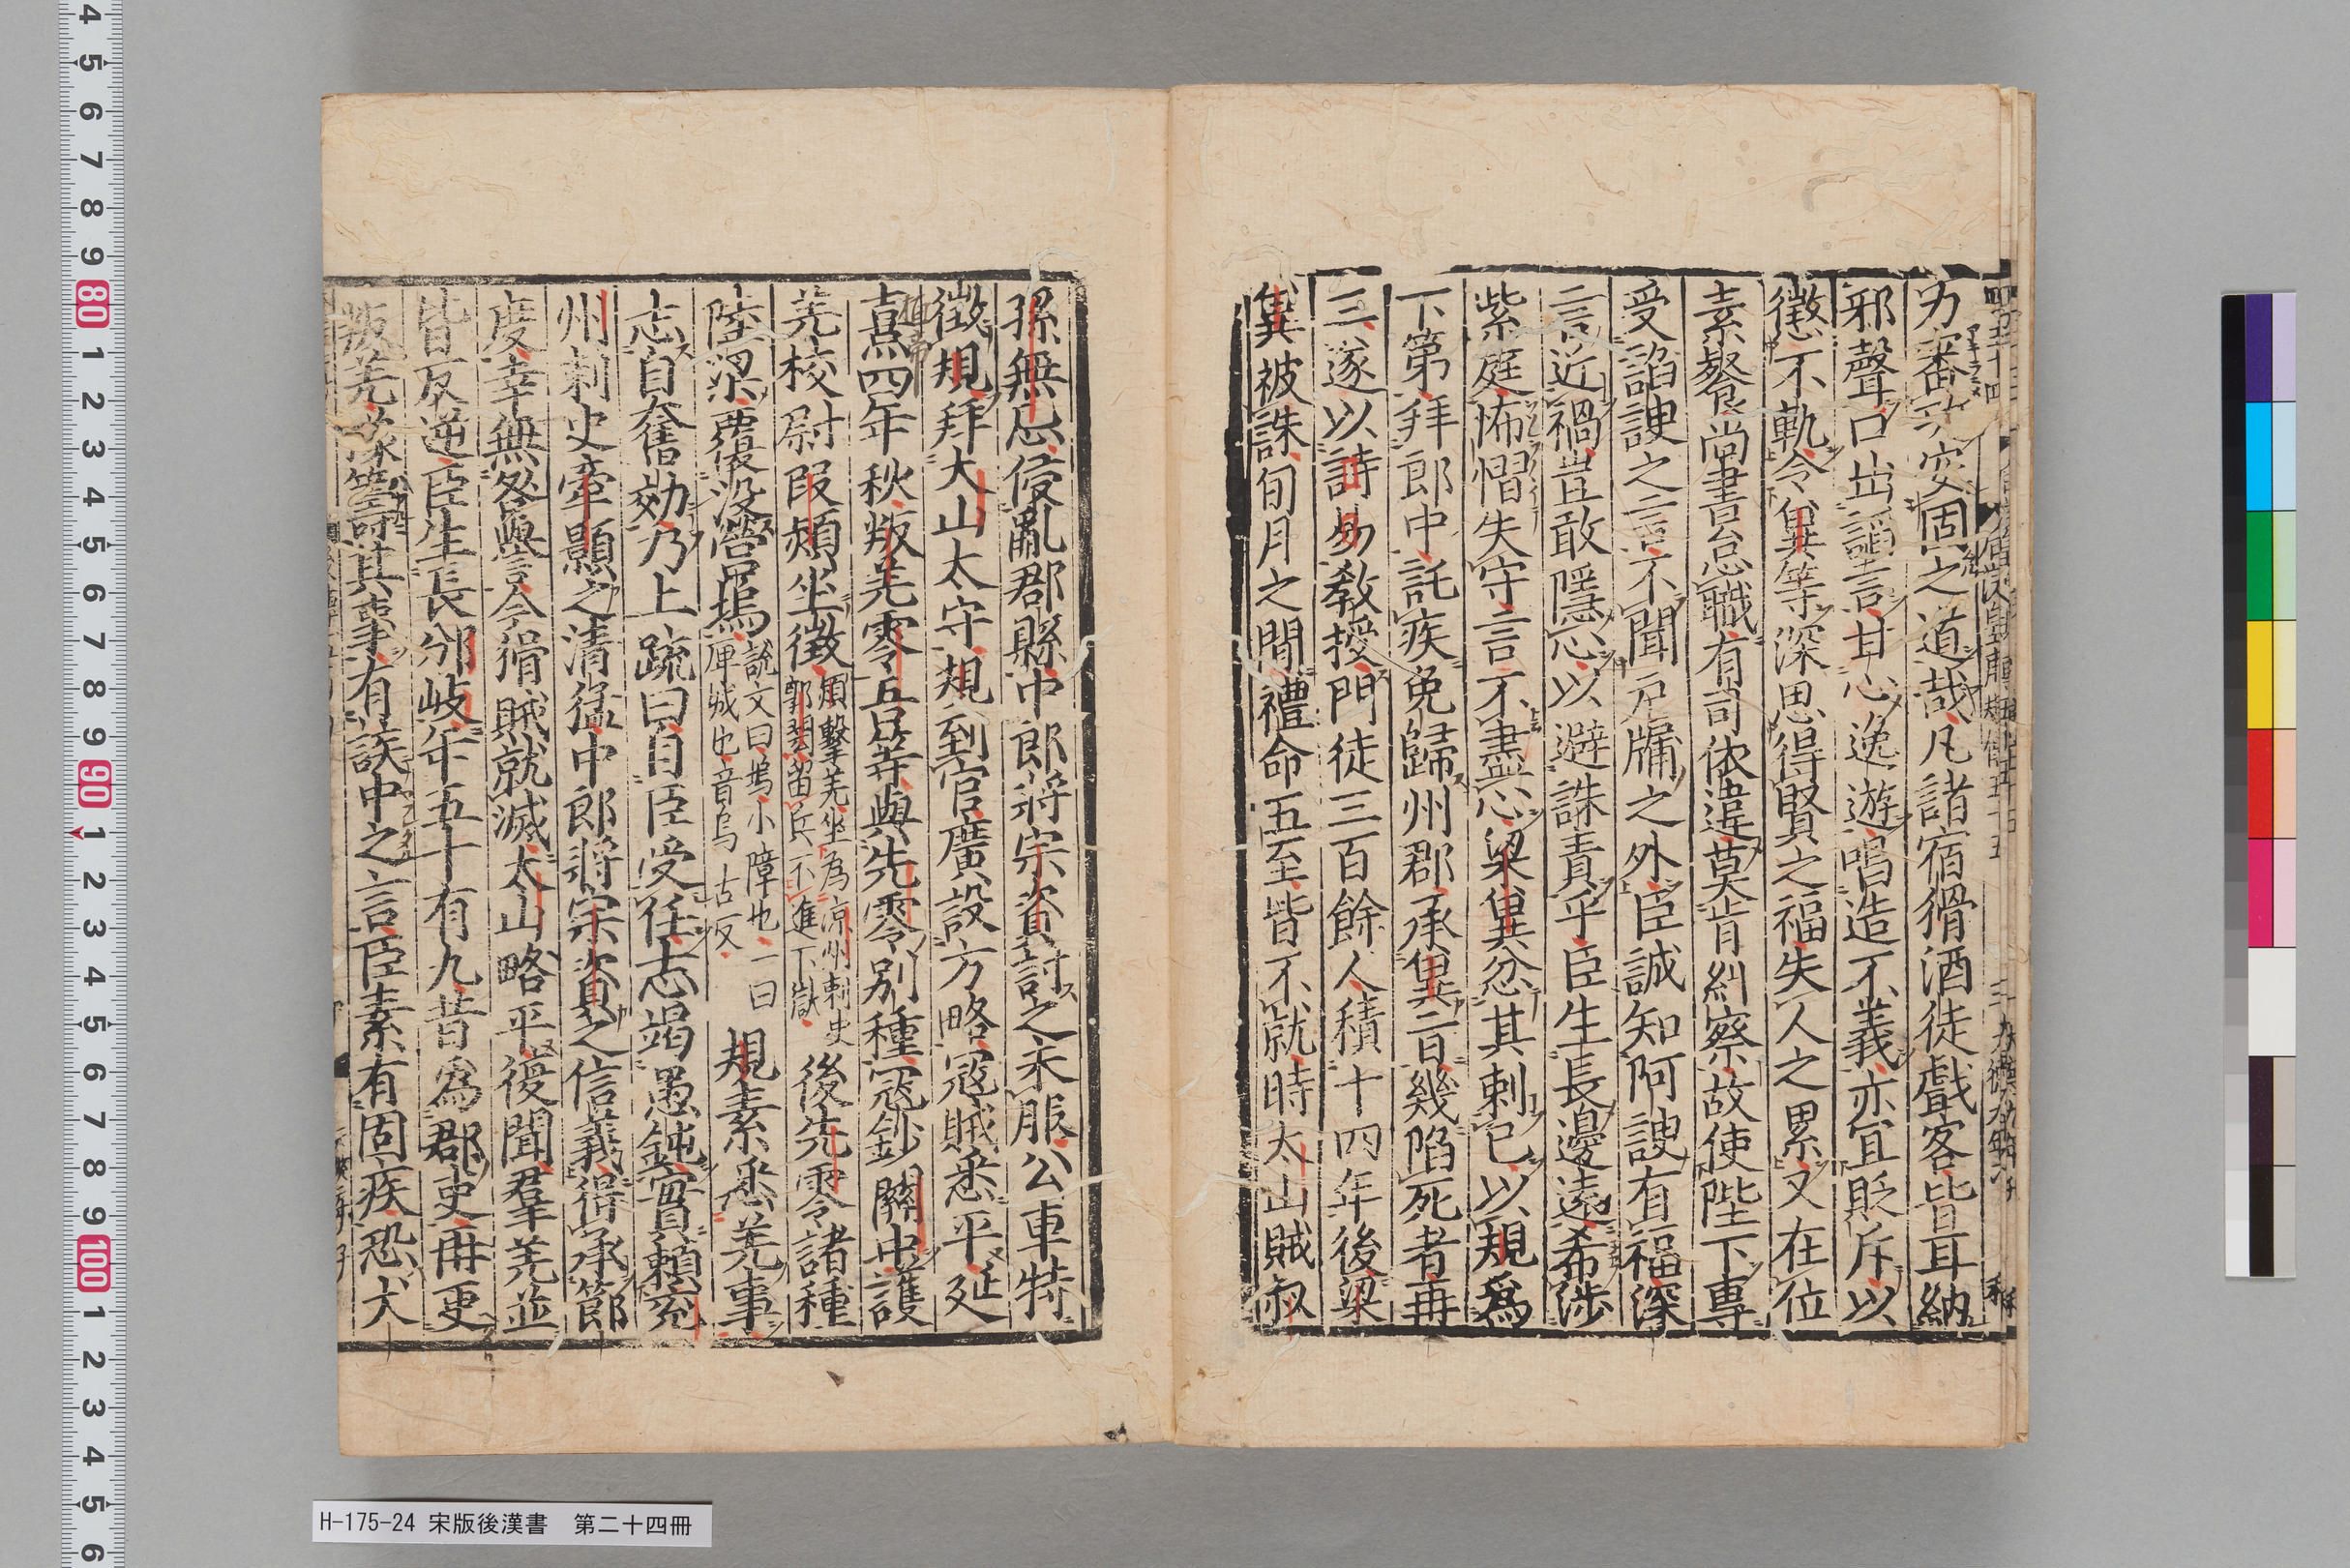 力審改安固之道哉凡諸宿猾酒徒戲客皆耳納
邪聲口出諂言甘心逸遊唱造不義亦宜貶斥以
懲不軌令冀等深思得賢之福失人之累又在位
素餐尚書怠職有司依違莫肯糾察故使陛下專
受諂諛之言不聞戶牖之外臣誠知阿諛有福深
言近禍豈敢隱心以避誅責乎臣生長邊遠希涉
紫庭怖慴失守言不盡心梁冀忿其刺己以規爲
下第拜郎中託疾免歸州郡承冀旨幾陷死者再
三遂以詩易教授門徒三百餘人積十四年後梁
冀被誅旬月之間禮命五至皆不就時太山賊叔
孫無忌侵亂郡縣中郎將宗資討之未服公車特
徵規拜太山太守規到官廣設方略寇賊悉平延
熹四年秋叛羌零吾等與先零別種寇鈔關中護
羌校尉段熲坐徵熲擊羌坐為涼州刺史郭閎留兵不進下獄後先零諸種
陸梁覆沒營塢說文曰塢小障也一曰庳城也音烏古反規素悉羌事
志自奮効乃上疏曰自臣受任志竭愚鈍實賴兖
州刺史牽顥之清猛中郎將宗資之信義得承節
度幸無咎譽今猾賊就滅太山略平復聞羣羌並
皆反逆臣生長邠岐年五十有九昔爲郡吏再更
叛羌豫籌其事有誤中之言臣素有固疾恐犬
H-175-24 宋版後漢書 第二十四冊